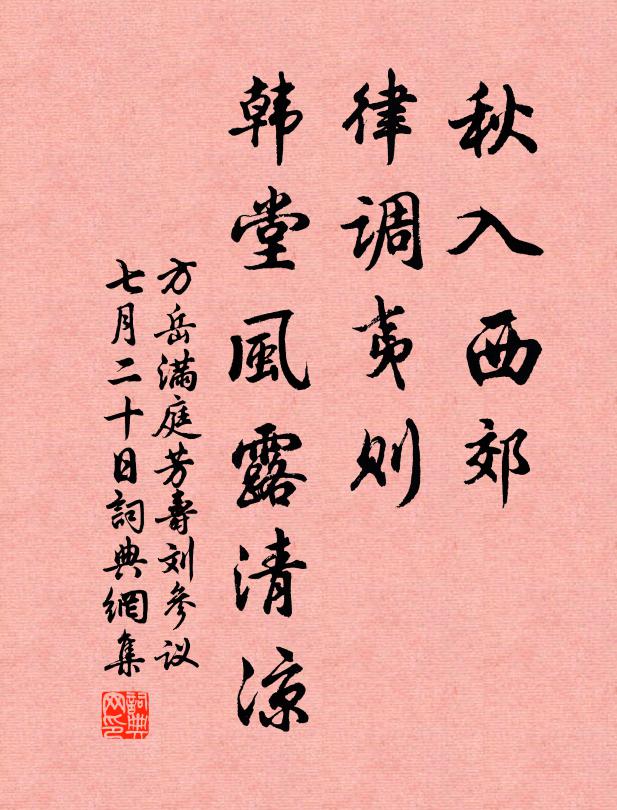 秋入西郊
律调夷则
韩堂風露清涼
方岳満庭芳壽刘參议
七月二十日詞典網集
詞典网印